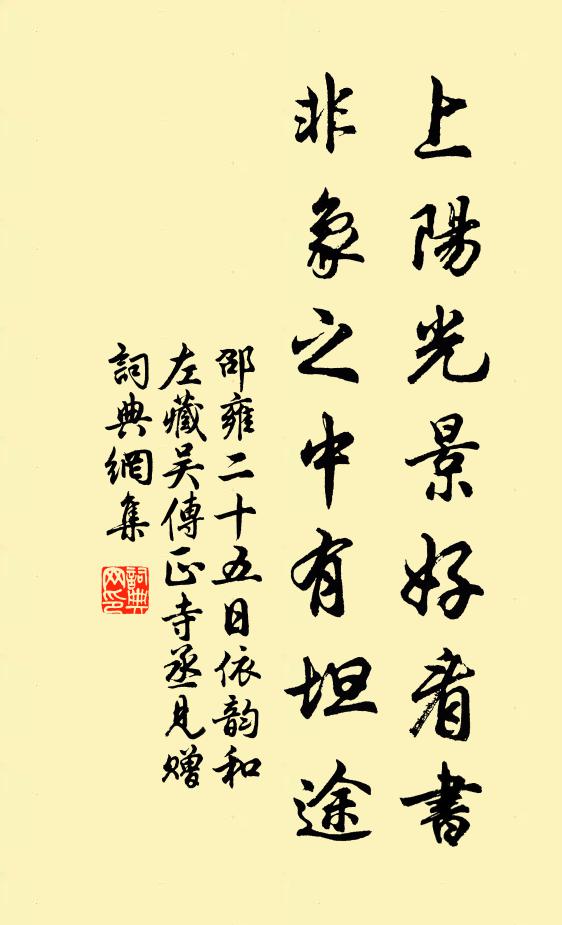 上陽光景好看書
非象之中有坦途
邵雍二十五日依韵和
左藏吴傳正寺丞見贈
詞典網集
詞典
网印